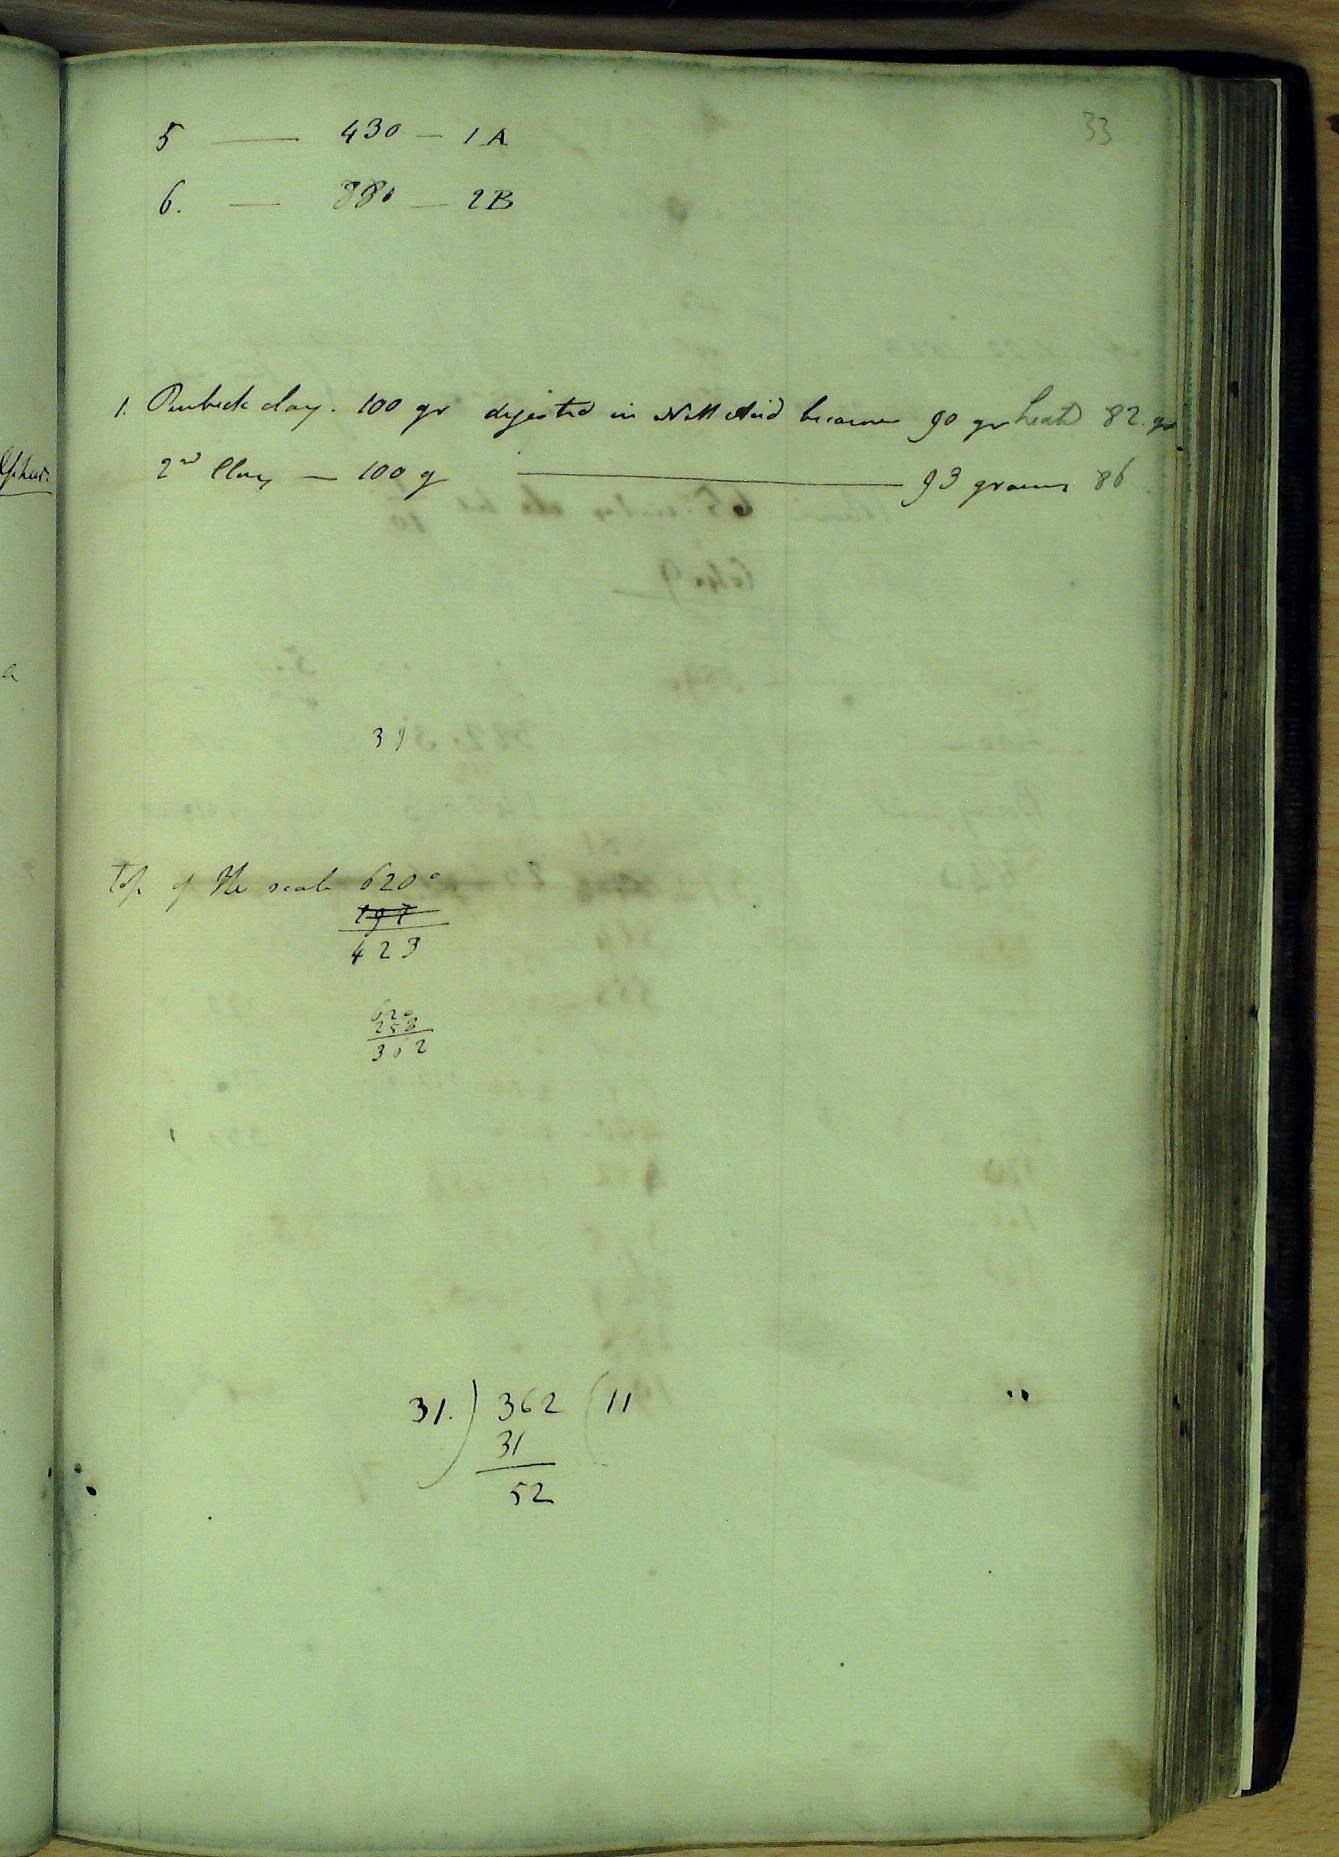 33
5 — 430 — 1A
6. — 880 — 2B
1. Purbeck clay. 100 gr digested in Nitt Acid became 90 gr heated 82. gr
2nd Clay — 100 g ——— 93 grams 86
31
Top of the scale 620°
197
423
620
258
362
31.) 362 (11
31
52